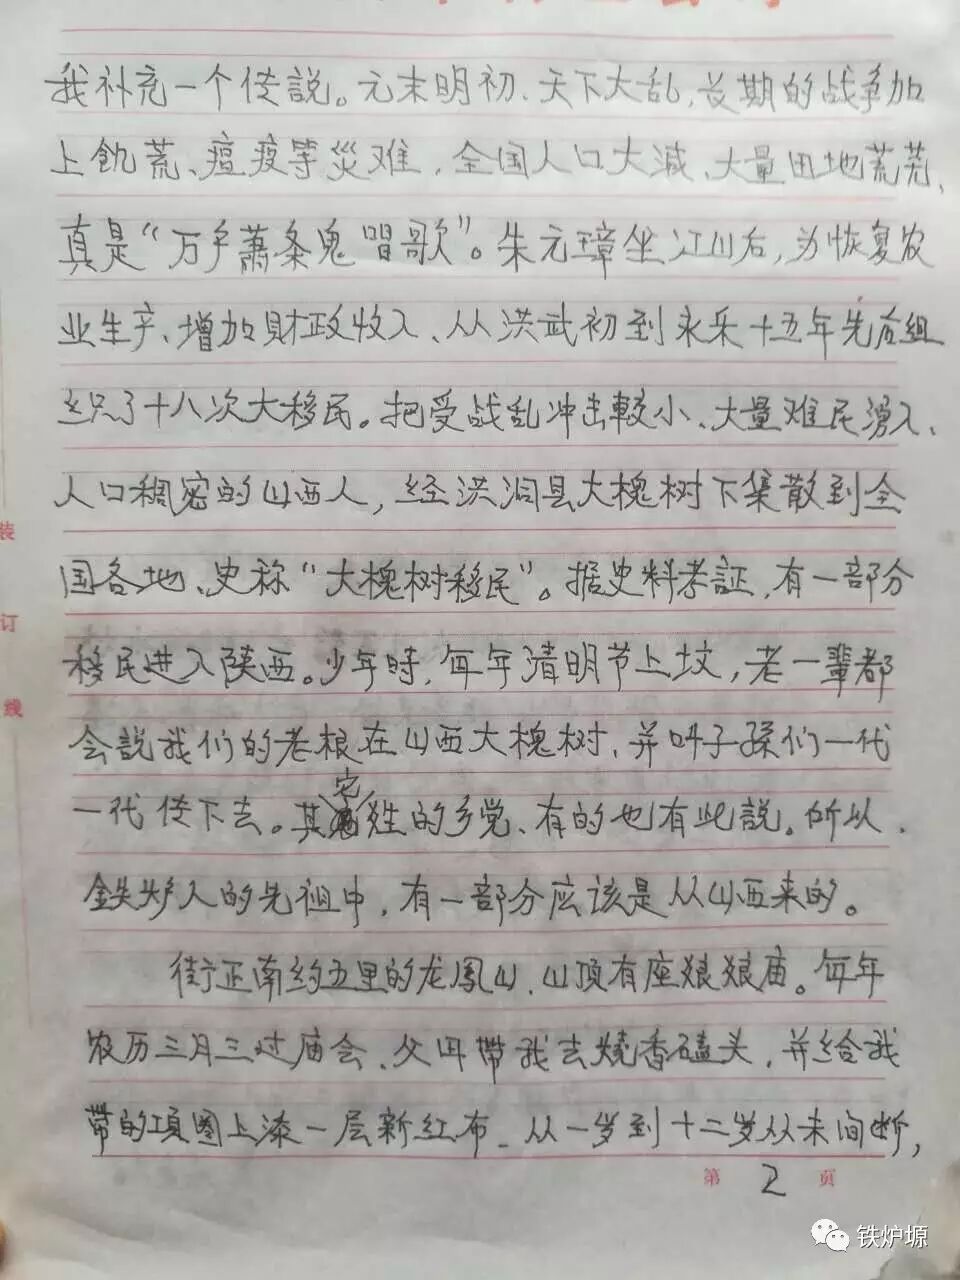 我补充一个传説。元末明初、天下大乱,长期的战争加
上飢荒、瘟疫等災难,全国人口大減、大量田地荒芜、
真是“万户蕭条鬼唱歌”。朱元璋坐江山后,为恢复农
业生产、增加财政收入、从洪武初到永乐十五年先后组
织了十八次大移民。把受战乱冲击較小、大量难民湧入、
人口稠密的山西人,经洪洞县大槐树下集散到全
国各地、史称“大槐树移民”。据史料考証,有一部分
移民进入陕西。少年時,每年清明节上坟,老一辈都
会説我们的老根在山西大槐树,并叫子孫们一代
一代传下去。其宅姓的乡党、有的也有此説。所以、
鉄炉人的先祖中,有一部分应该是从山西来的。
街正南约五里的龙鳳山、山顶有座娘娘庙。每年
农历三月三过庙会、父母带我去燒香磕头,并给我
带的項圈上漆一层新红布、从一岁到十二岁从未间断,
第 2 页
装
订
线
铁炉塬